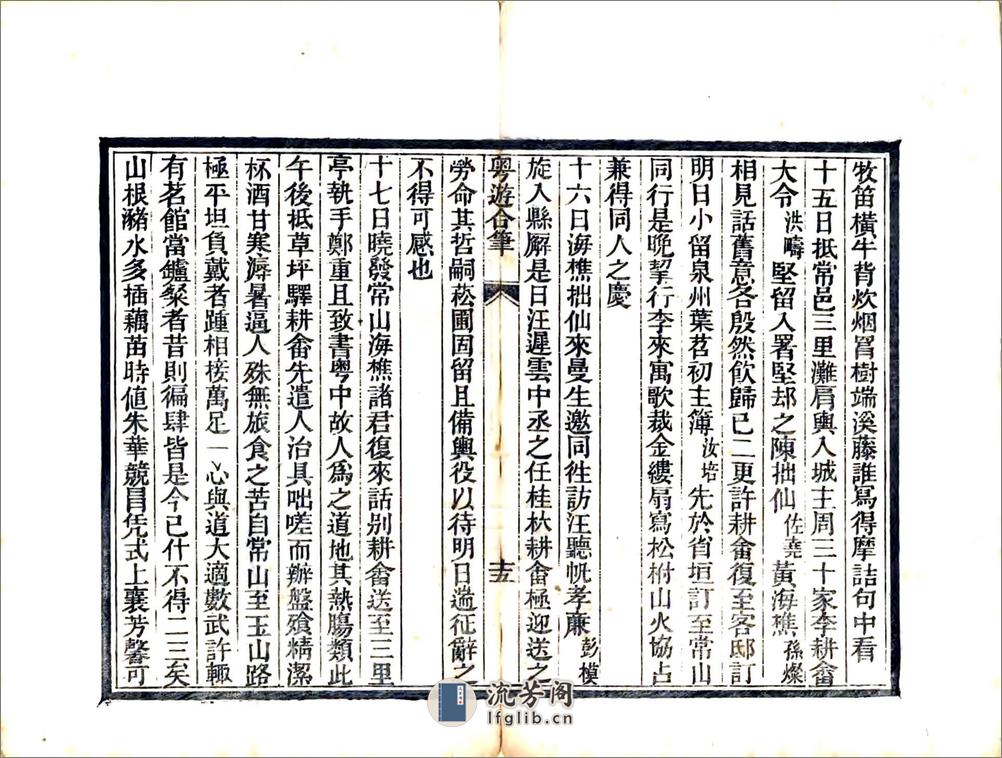 牧笛橫牛背炊烟罥樹端溪藤誰寫得摩詰句中看
十五日抵常邑三里灘肩輿入城主周三十家李耕畬
大令洪疇堅留入署堅却之陳拙仙佐堯黃海樵孫燦
相見話舊意各殷然飲歸已二更許耕畬復至客邸訂
明日小留泉州葉茗初主簿汝培先於省垣訂至常山
同行是晚挈行李來寓歌裁金縷扇寫松柎山火協占
兼得同人之慶
十六日海樵拙仙來曼生邀同徃訪汪聽帆孝廉彭模
旋入縣廨是日汪遲雲中丞之任桂林耕畬極迎送之
粵遊合筆
十五
勞命其哲嗣菘圃固留且備輿役以待明日遄征辭之
不得可感也
十七日曉發常山海樵諸君復來話別耕畬送至三里
亭執手鄭重且致書粵中故人為之道地其熱腸類此
午後抵草坪驛耕畬先遣人治具咄嗟而辦盤飱精潔
杯酒甘寒溽暑逼人殊無旅食之苦自常山至玉山路
極平坦負戴者踵相接萬足一心與道大適數武許輒
有茗館當鑪粲者昔則徧肆皆是今已什不得二三矣
山根瀦水多插藕苗時值朱華競目凭式上襄芳馨可
流芳阁
lfglib.cn